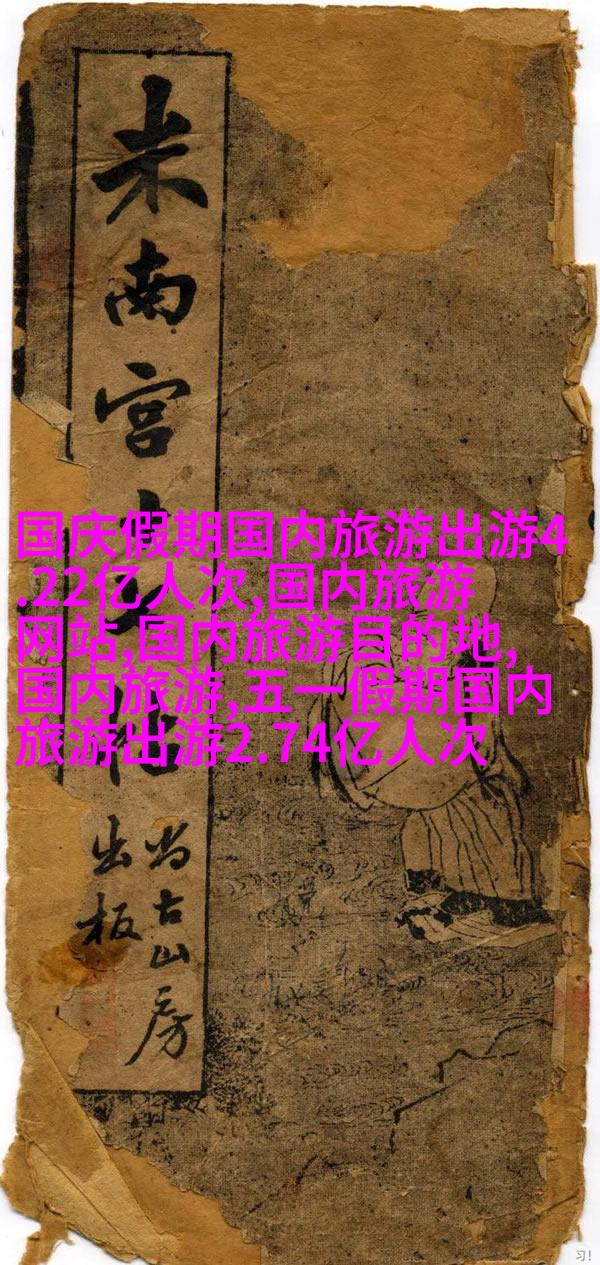 米南宫
国庆假期国内旅游出游4
.22亿人次,国内旅游
网站,国内旅游目的地,
国内旅游,五一假期国内
旅游出游2.74亿人次
尚古山房
出板
习!